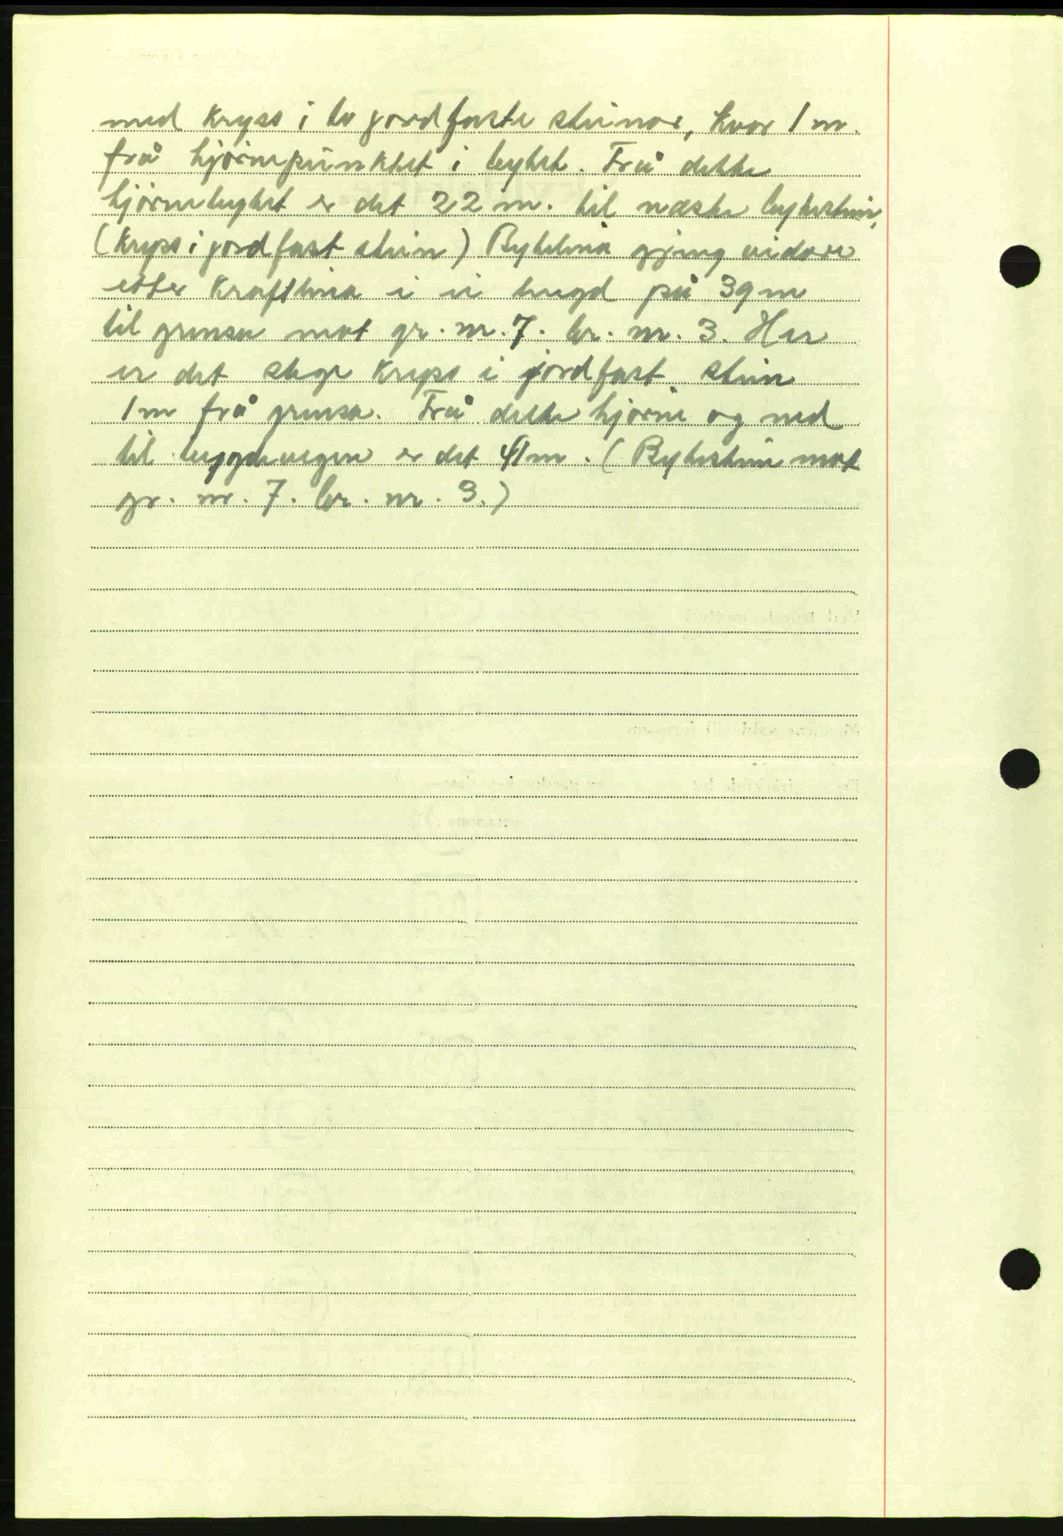 med kryss i to jordfaste steinar, kvar 1 m.
frå hjørnepunktet i bytet. Frå dette
hjørnebytet er det 22 m. til næste bytestein,
(kryss i jordfast stein) Bytelina gjeng vidare
etter kraftlina i ei lengd på 39 m
til grensa mot gr. nr. 7. br. nr. 3. Her
er det slege kryss i jordfast stein
1 m frå grensa. Frå dette hjørne og ned
til bygdavegen er det 41 m. (Bytestein mot
gr. nr. 7. br. nr. 3.)